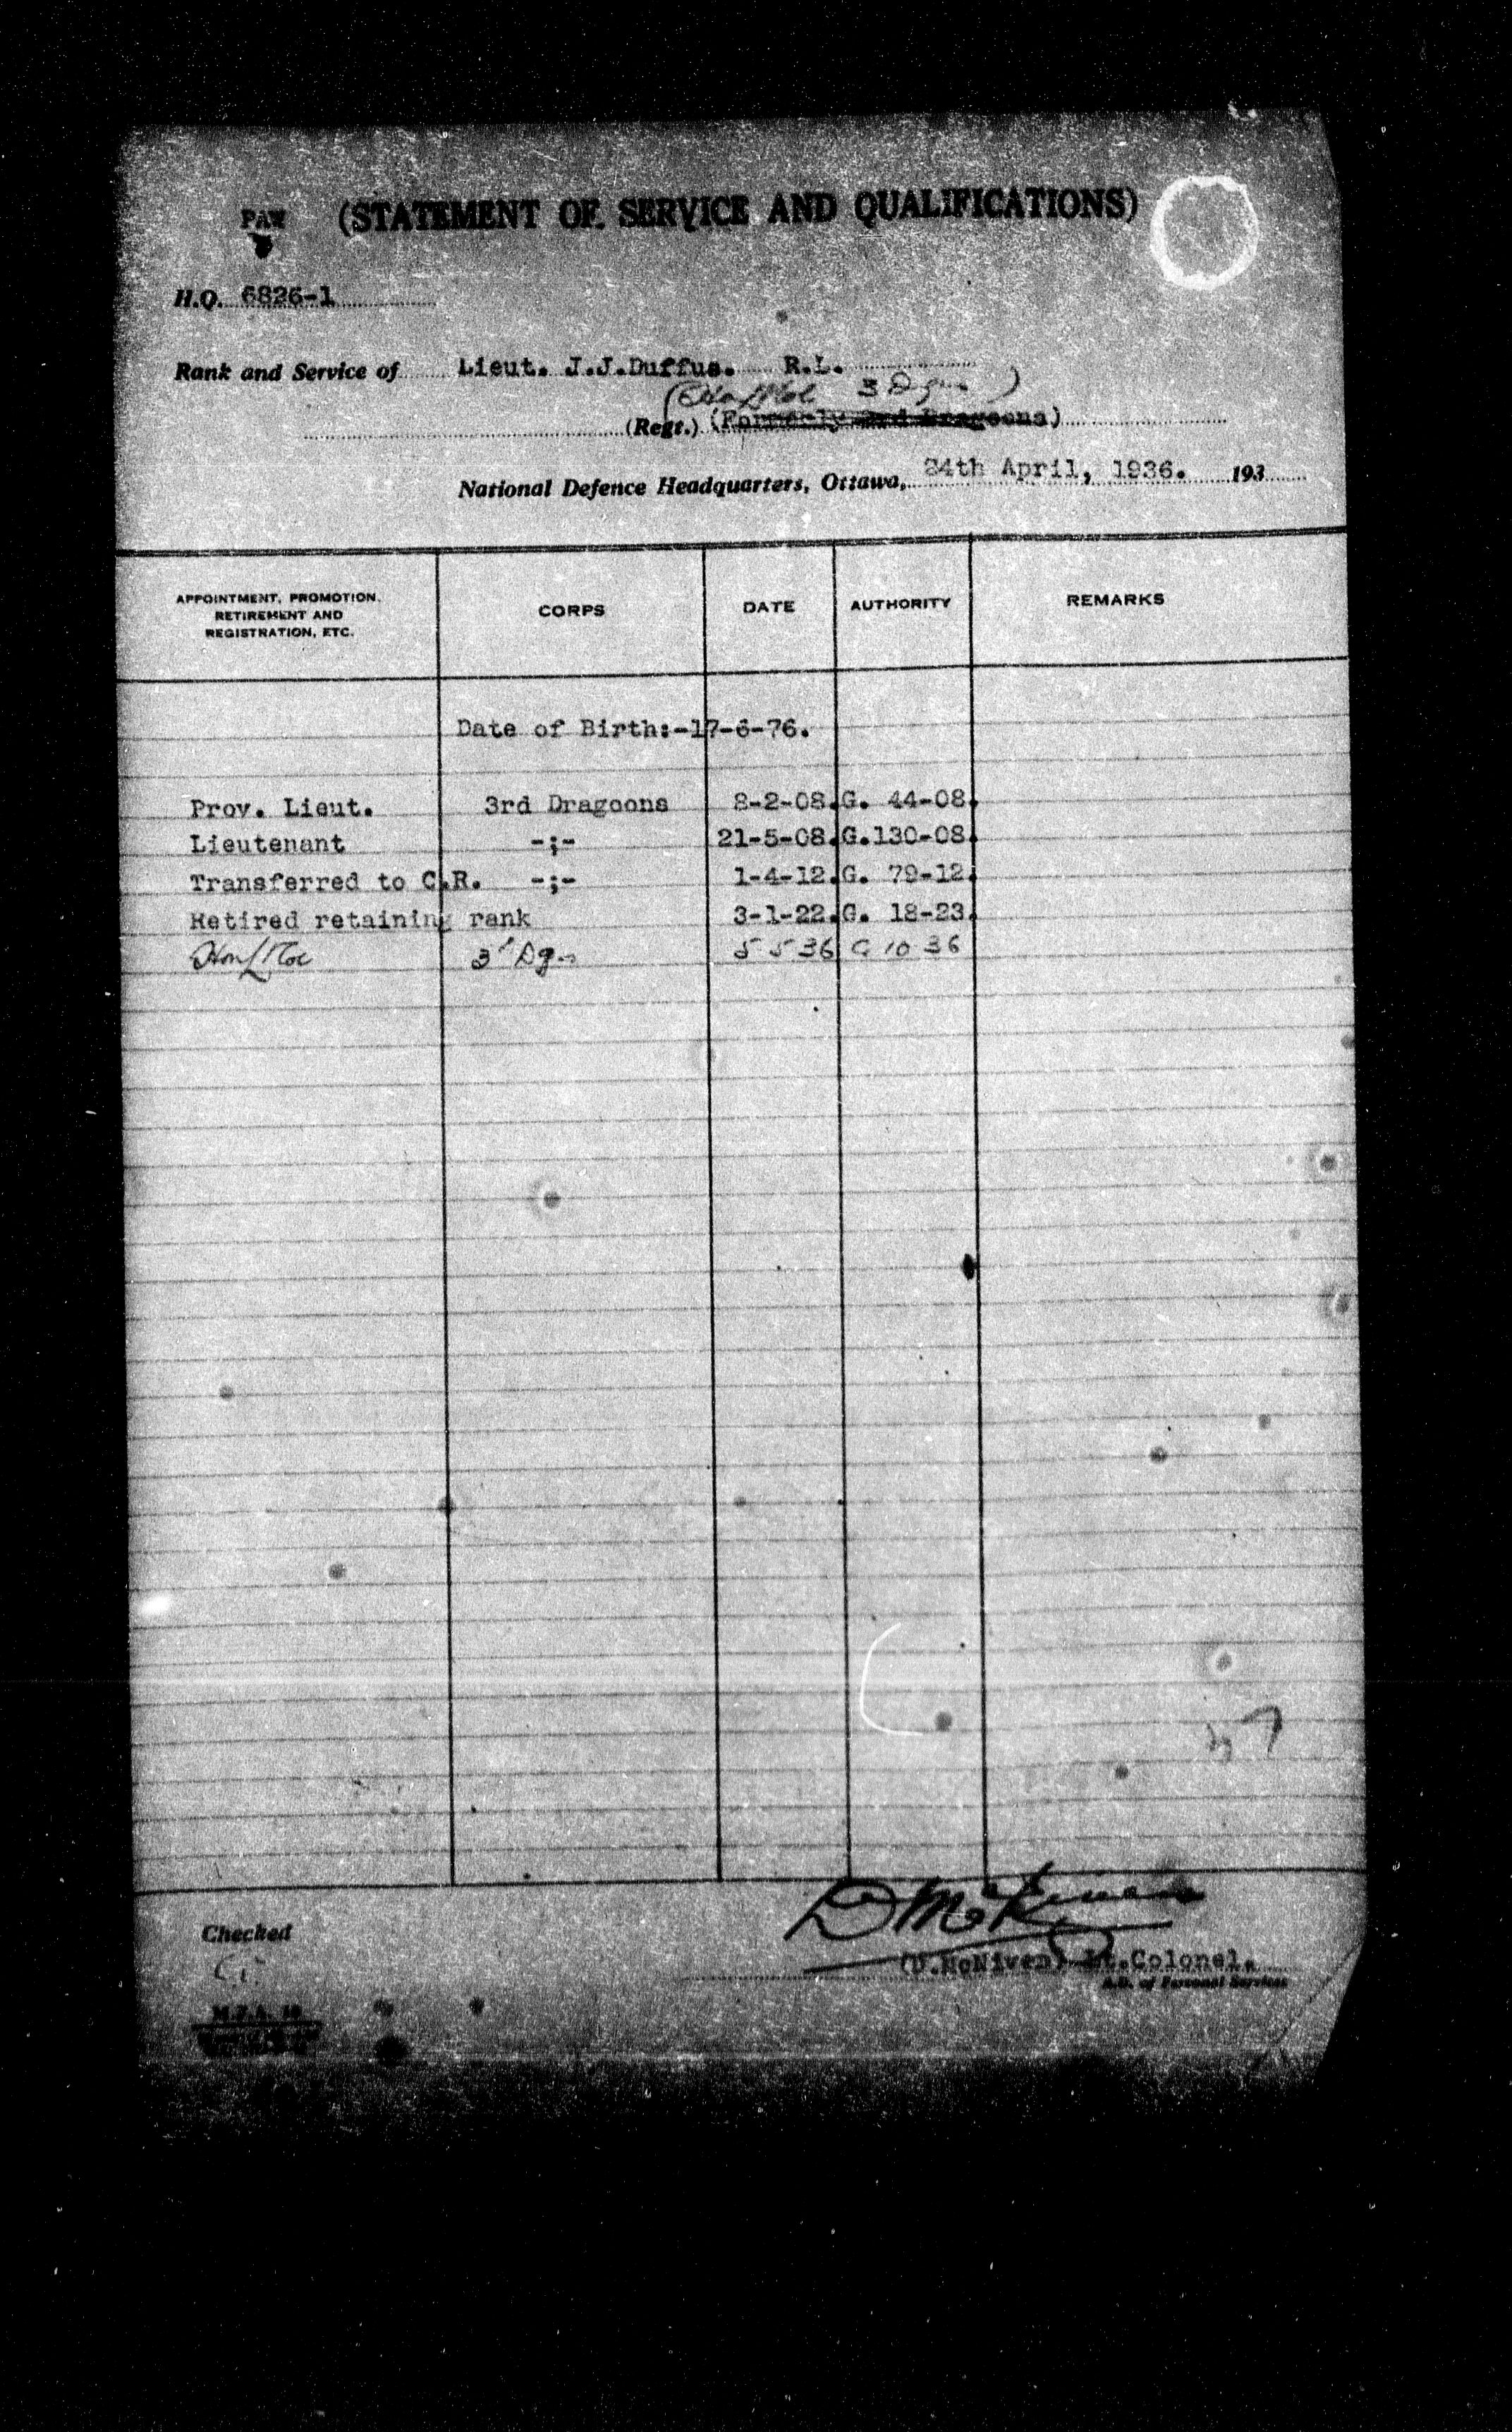 PAW (STATEMENT OF SERVICE AND QUALIFICATIONS)
H.Q. 6826-1
Rank and Service of Lieut. J.J.Duffus. R.L.
(Hon L/Col 3 Dgns)
(Regt.) (Formerly 3rd Dragoons)
National Defence Headquarters, Ottawa, 24th April, 1936. 193
APPOINTMENT, PROMOTION, RETIREMENT AND REGISTRATION, ETC. CORPS DATE AUTHORITY REMARKS
Date of Birth:-17-6-76.
Prov. Lieut. 3rd Dragoons 8-2-08. G. 44-08.
Lieutenant -;- 21-5-08. G.130-08.
Transferred to C.R. -;- 1-4-12. G. 79-12.
Retired retaining rank 3-1-22. G. 18-23.
Hon L/Col 3 Dgns 5 5 36 G 10 36
Checked
(D.McNiven) Lt.Colonel.
A.D. of Personal Services